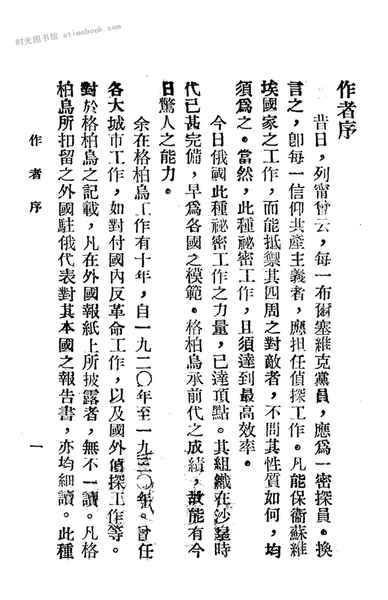 时光图书馆 atimebook.com
作者序
昔日，列甯曾云，每一布爾塞維克黨員，應爲一密探員。換
言之，卽每一信仰共產主義者，應担任偵探工作。凡能保衛蘇維
埃國家之工作，而能抵製其四周之對敵者，不問其性質如何，均
須爲之。當然，此種祕密工作，且須達到最高效率。
今日俄國此種祕密工作之力量，已達頂點。其組織在沙皇時
代已甚完備，早爲各國之模範。格柏烏承前代之成績，故能有今
日驚人之能力。
余在格柏烏工作有十年，自一九二〇年至一九三〇年。曾任
各大城市工作，如對付國內反革命工作，以及國外偵探工作等。
對於格柏烏之記載，凡在外國報紙上所披露者，無不一讀。凡格
柏烏所扣留之外國駐俄代表對其本國之報告書，亦均細讀。此種
作者序 一